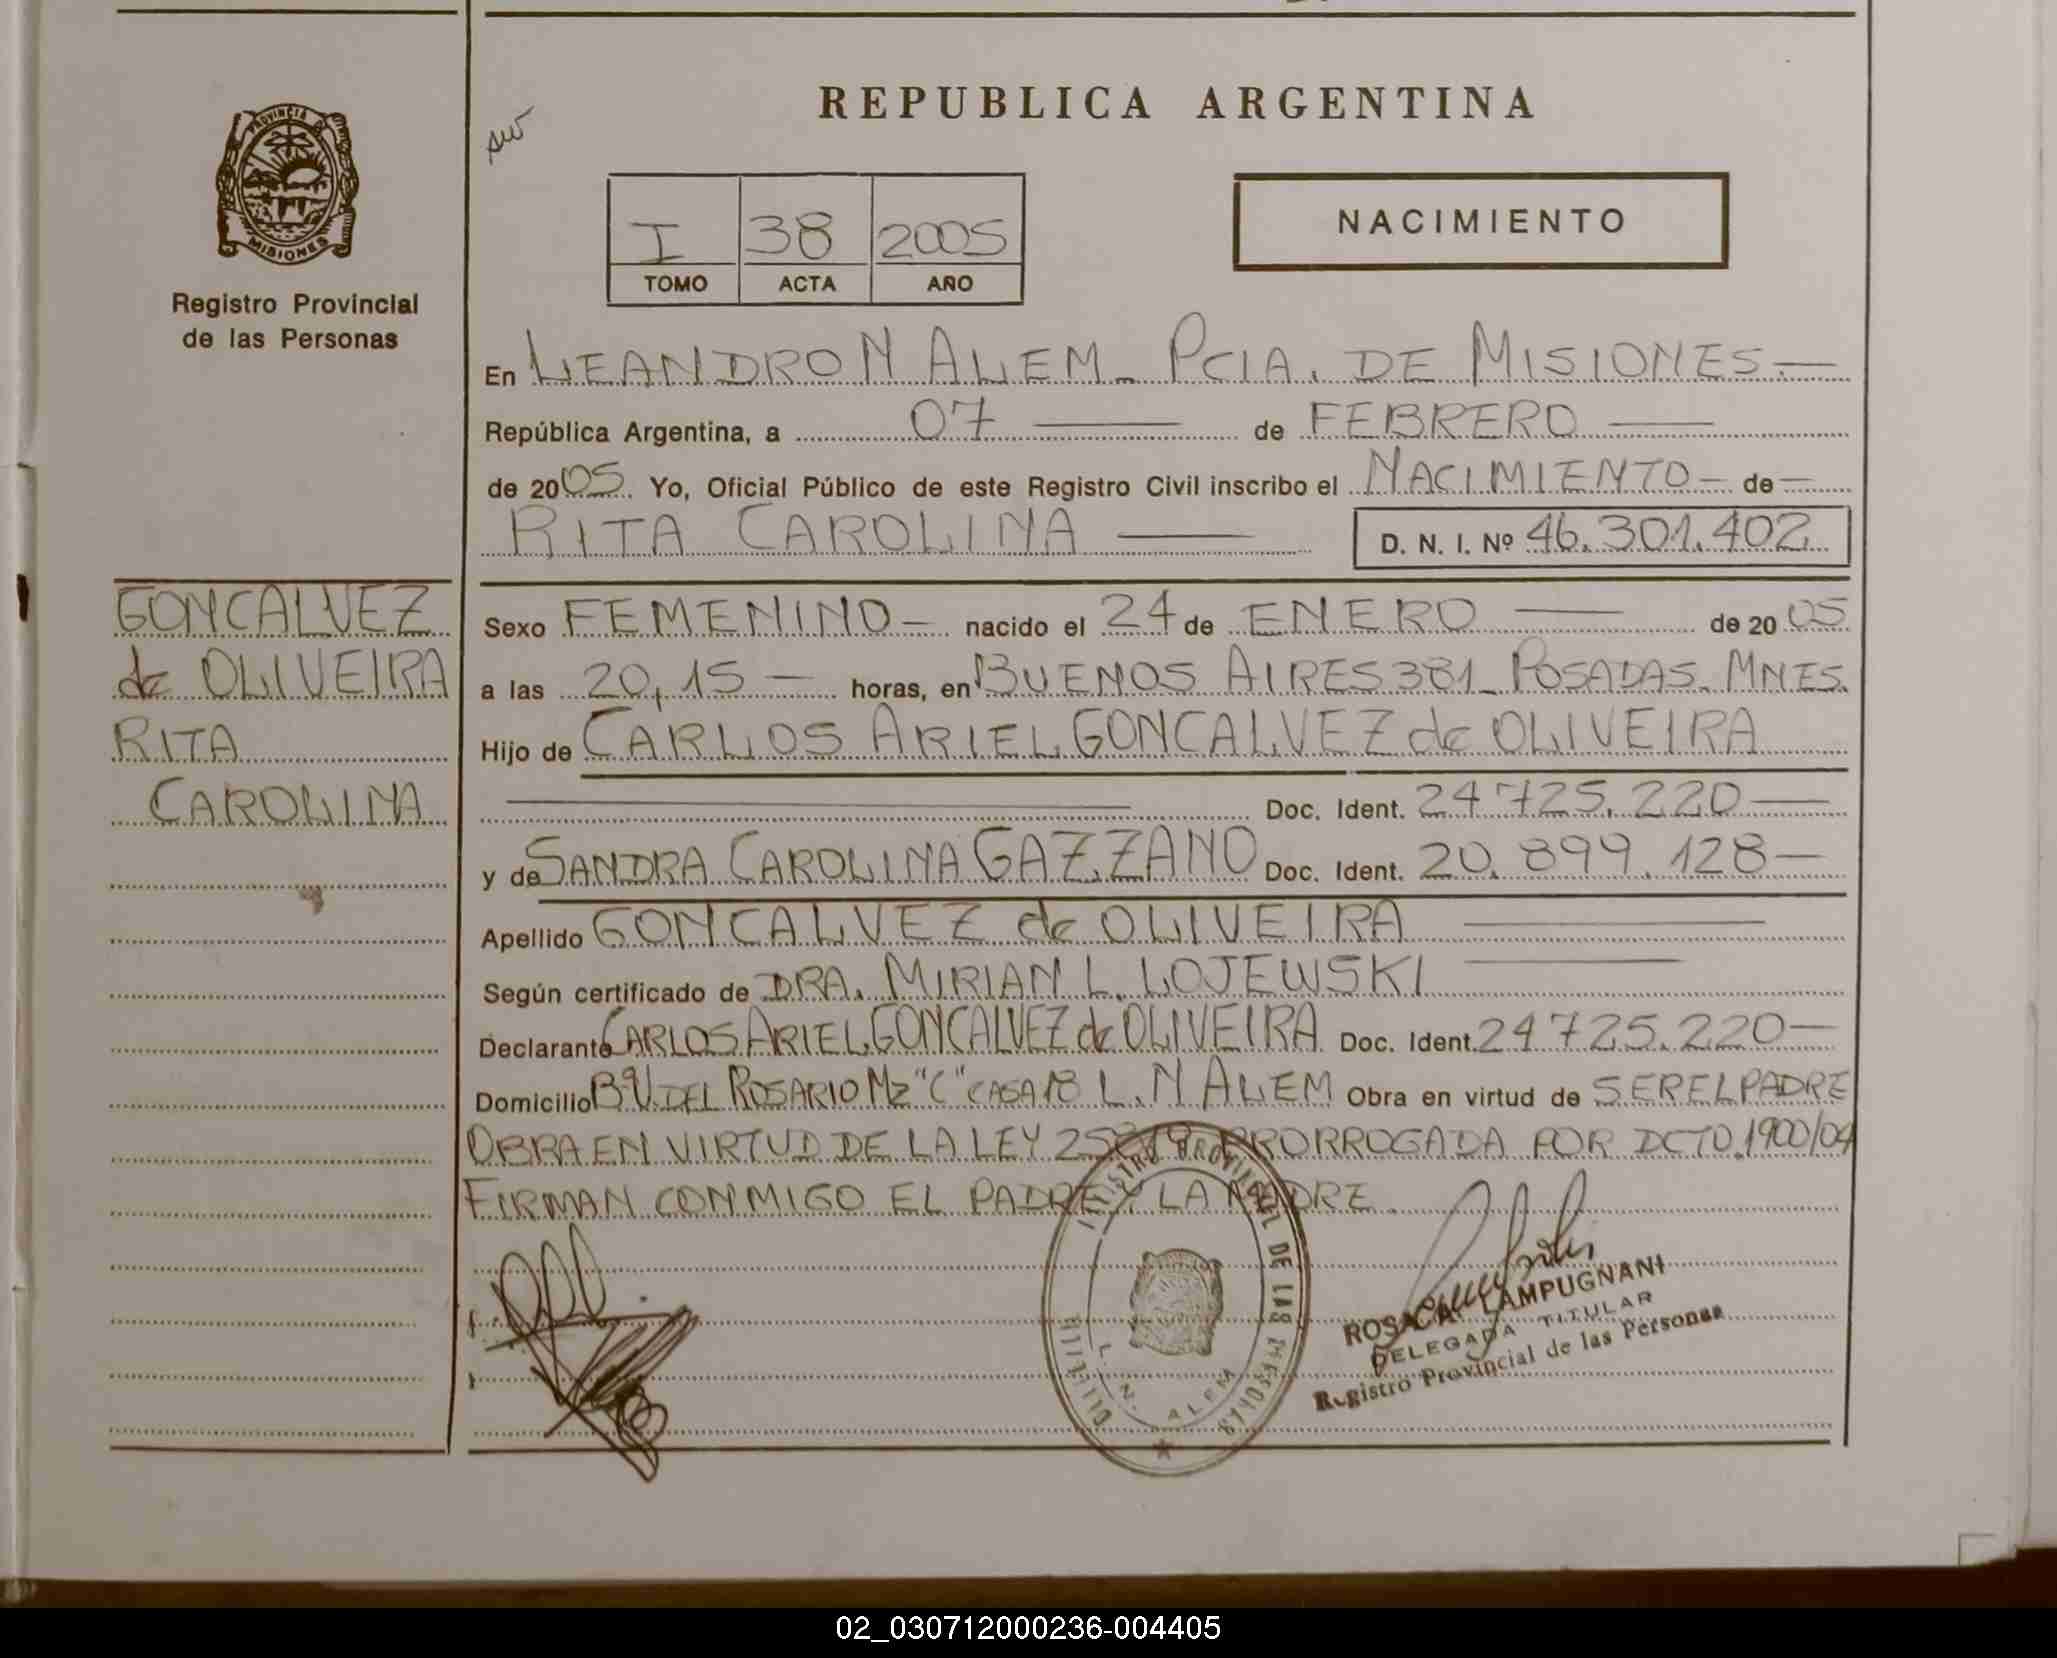 REPUBLICA ARGENTINA
PROVINCIA DE MISIONES
Registro Provincial
de las Personas
I 38 2005
TOMO ACTA AÑO
NACIMIENTO
En LEANDRO N ALEM_ PCIA. DE MISIONES.—
República Argentina, a 07 — de FEBRERO —
de 2005. Yo, Oficial Público de este Registro Civil inscribo el NACIMIENTO — de —
RITA CAROLINA — D. N. I. Nº 46.301.402
GONCALVEZ
de OLIVEIRA
RITA
CAROLINA
Sexo FEMENINO — nacido el 24 de ENERO — de 2005
a las 20,15 — horas, en BUENOS AIRES 381_ POSADAS. MNES.
Hijo de CARLOS ARIEL GONCALVEZ de OLIVEIRA
— Doc. Ident. 24.725.220 —
y de SANDRA CAROLINA GAZZANO Doc. Ident. 20.899.128 —
Apellido GONCALVEZ de OLIVEIRA —
Según certificado de DRA. MIRIAN L. LOJEWSKI —
Declarante CARLOS ARIEL GONCALVEZ de OLIVEIRA Doc. Ident. 24.725.220 —
Domicilio Bº V. DEL ROSARIO Mz "C" CASA 18 L. N ALEM Obra en virtud de SER EL PADRE
OBRA EN VIRTUD DE LA LEY PRORROGADA POR DCTO. 1900/04
FIRMAN CONMIGO EL PADRE Y LA MADRE.
REGISTRO PROVINCIAL DE LAS PERSONAS
L. N. ALEM
ROSA LAMPUGNANI
DELEGADA TITULAR
Registro Provincial de las Personas
02_030712000236-004405